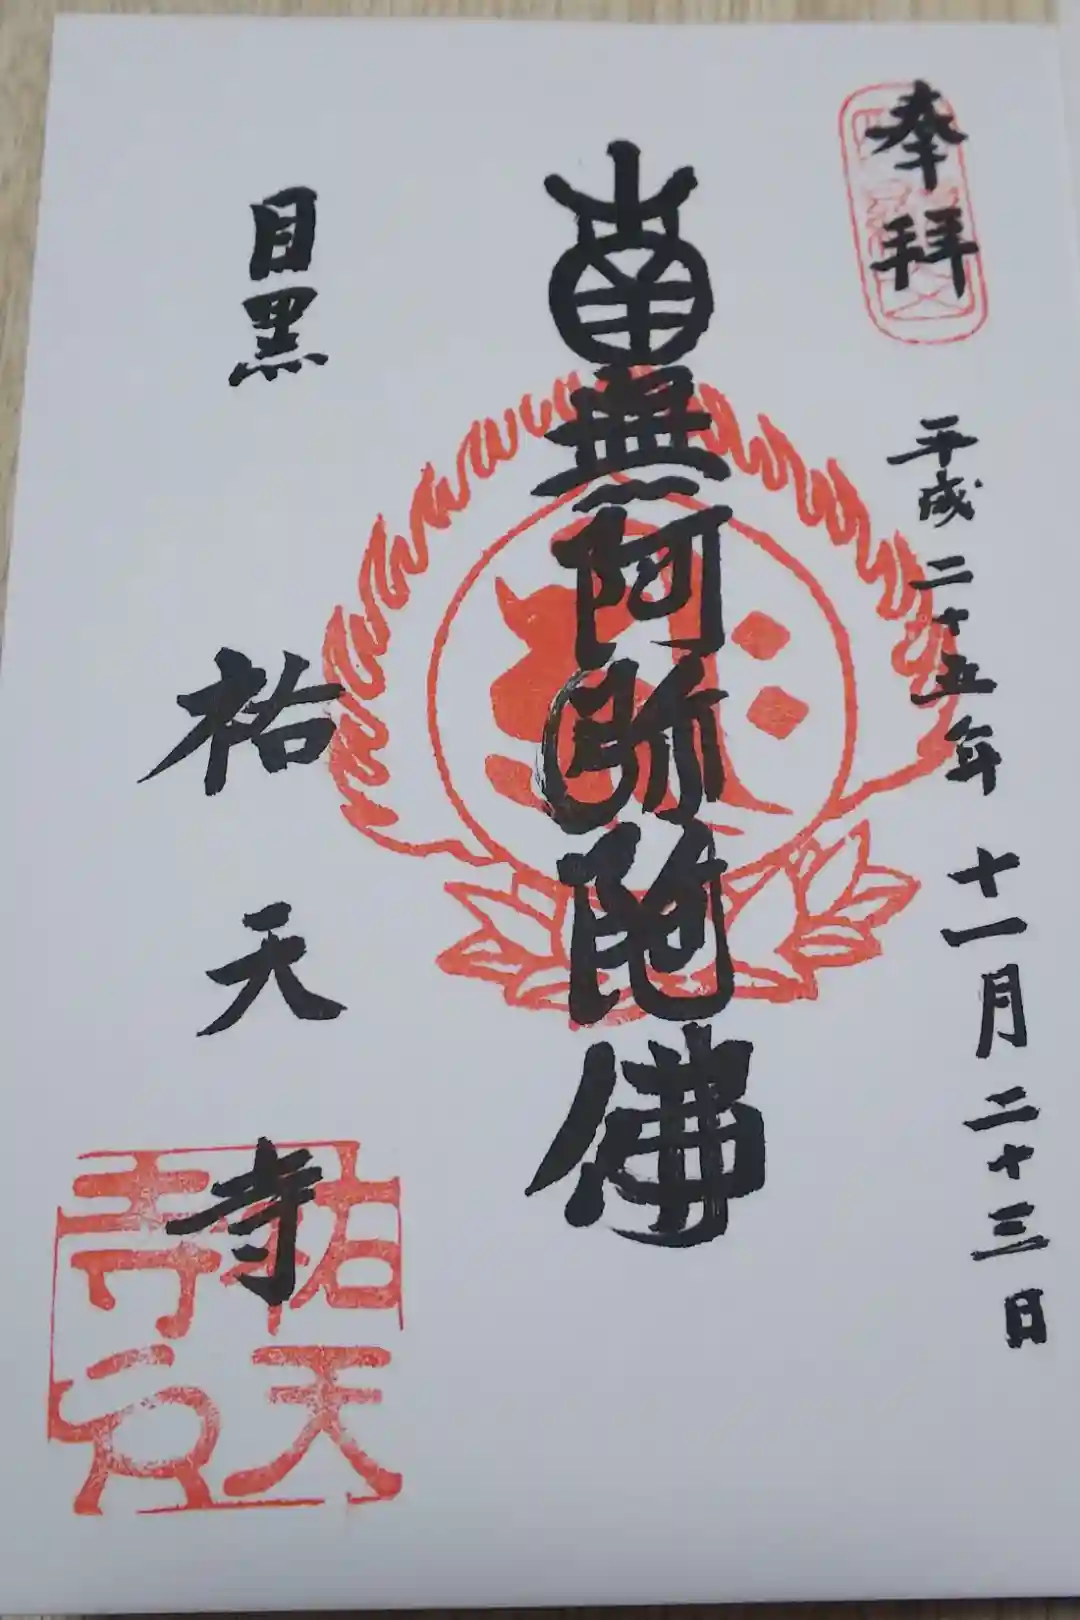 奉拝
平成二十五年十一月二十三日
南無阿弥陀佛
目黒
祐天寺
祐天
寺印